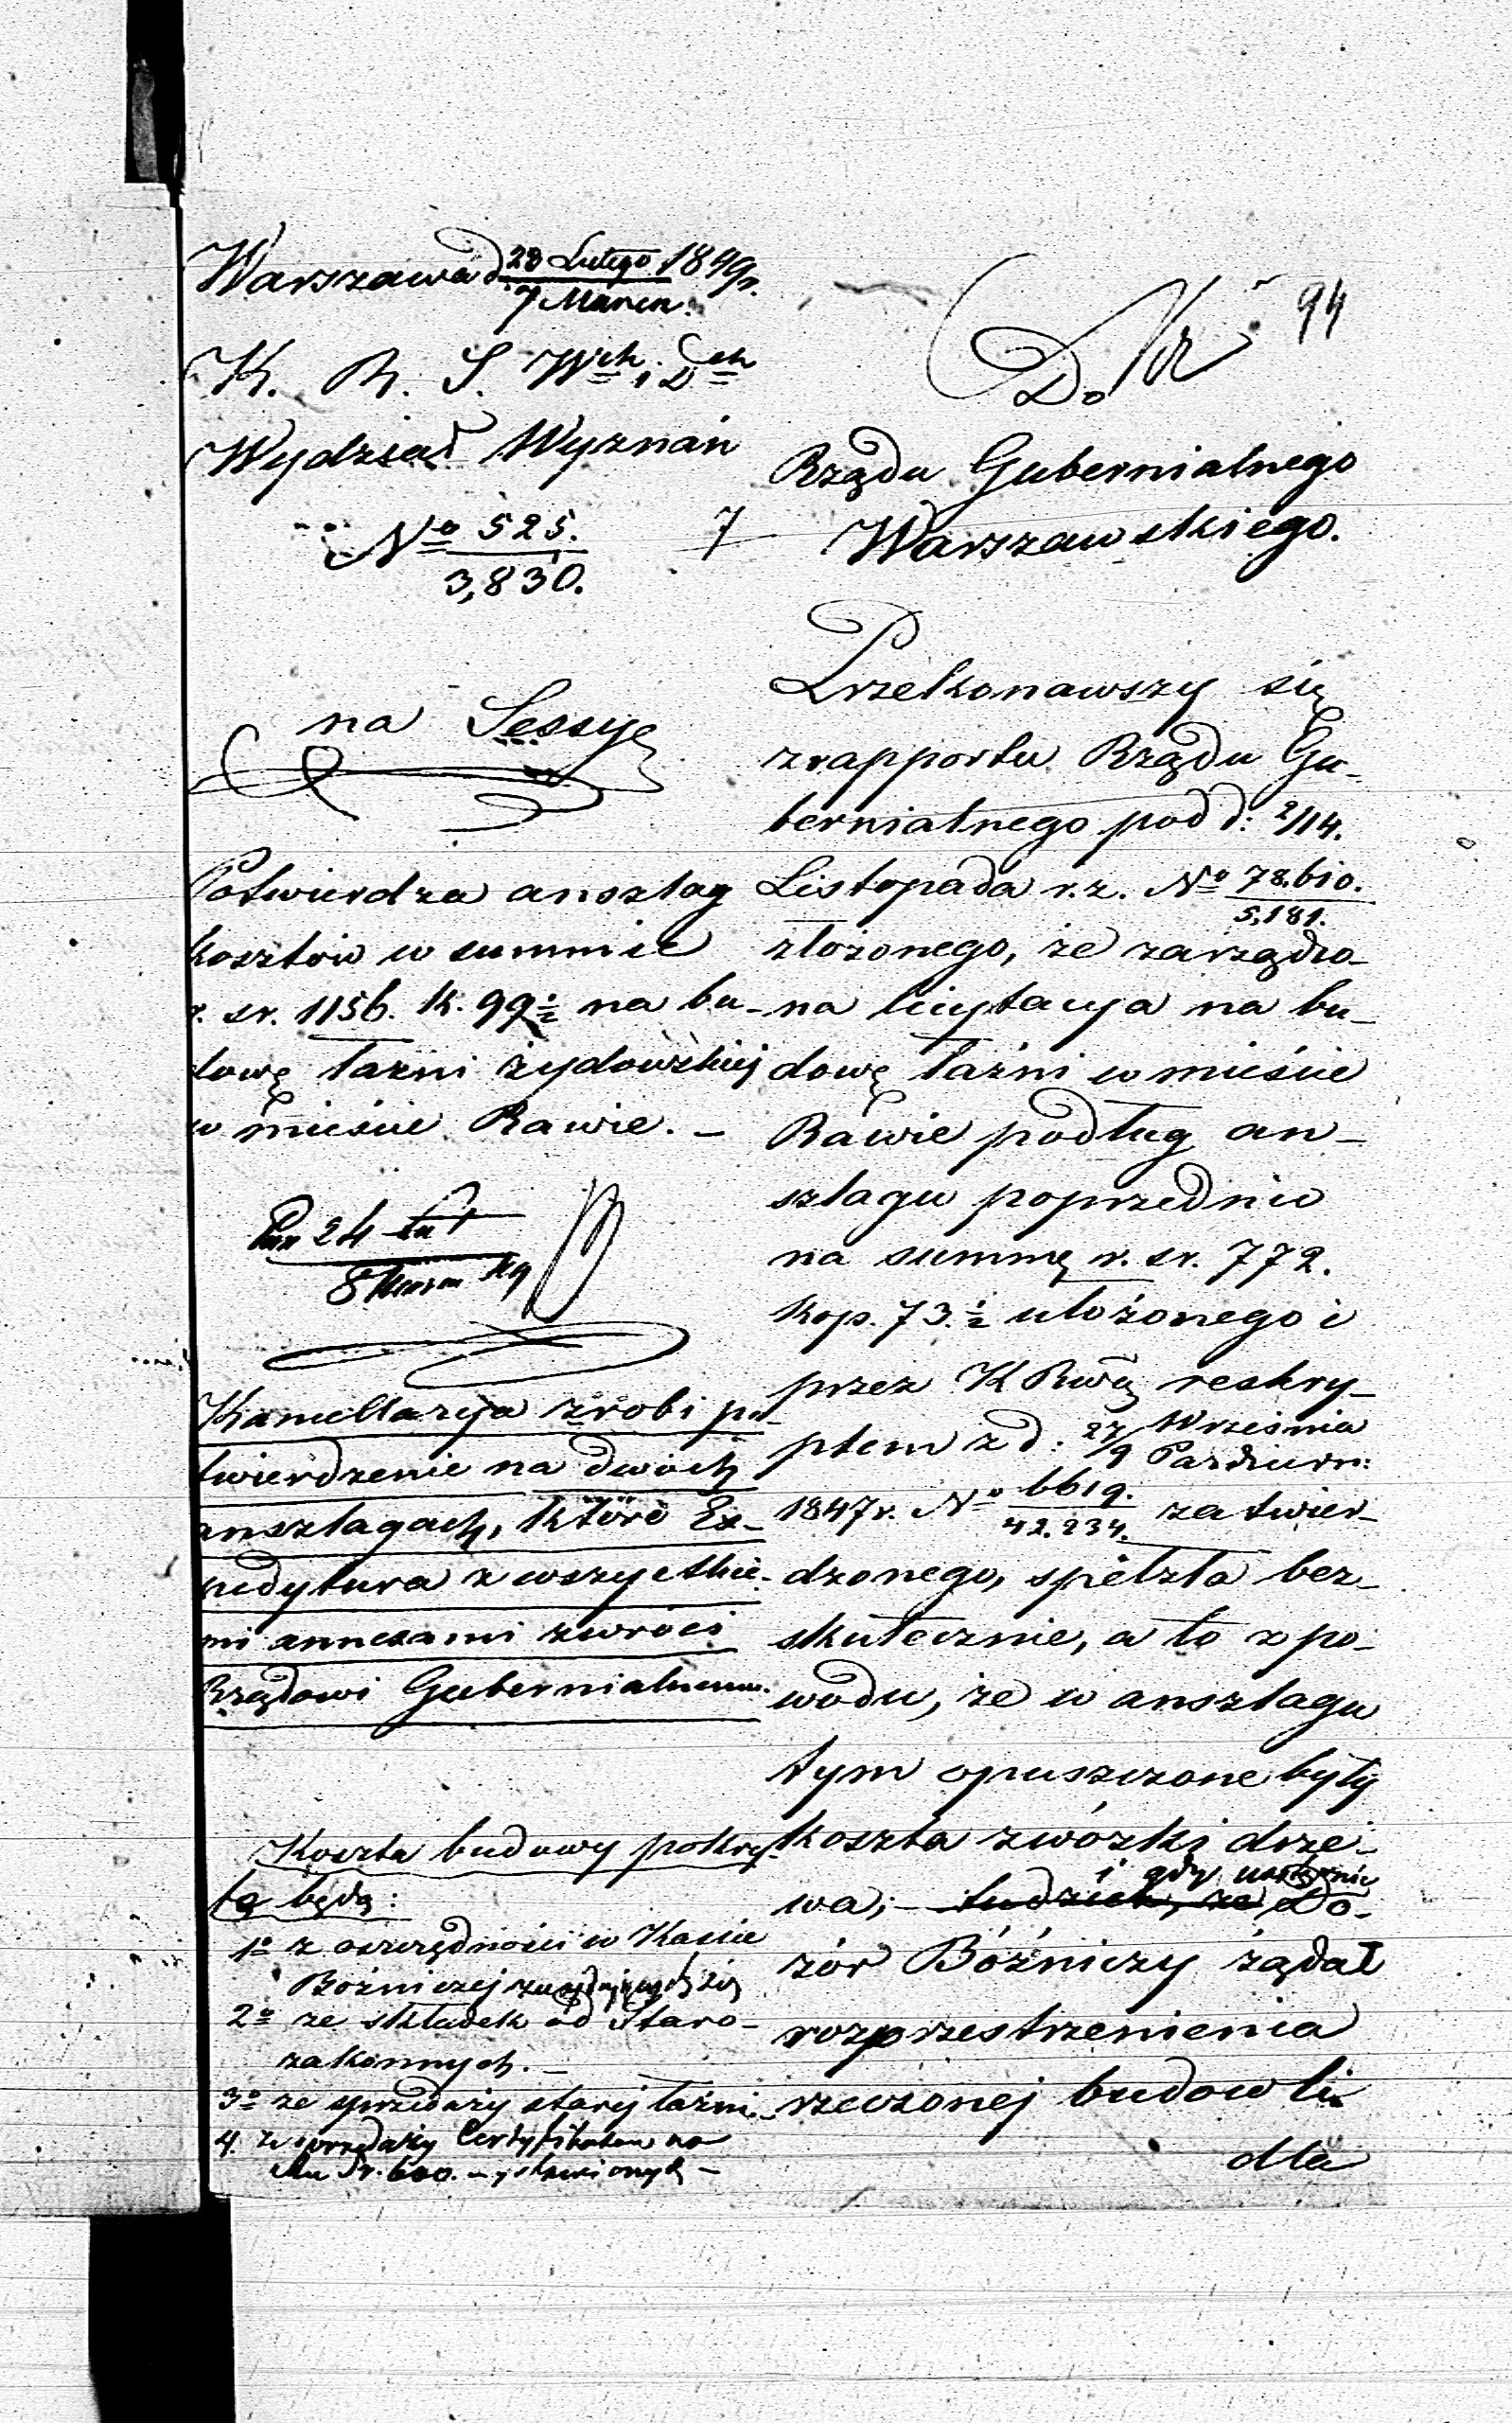 Warszawa d. 23 Lutego 1849 r.
7 Marca.
K. R. S. Wch. i Dch
Wydział Wyznań
No 525.
3,830.
na Sessyę
Potwierdza anszlag
kosztów w summie
r. sr. 1156. k. 99½ na bu-
dowę łaźni żydowskiej
w mieście Rawie. –
24 Lut
8 49
Kancellaryja zrobi po-
twierdzenie na dwóch
anszlagach, które Ex-
pedytura z wszystkie-
mi annexami zwróci
Rządowi Gubernialnemu.
Koszta budowy pokry-
te będą:
1o z oszczędności w Kassie
Bóżniczej znajdujących się
2o ze składek od Staro-
zakonnych. –
3o ze sprzedaży starej łaźni. –
4. ze sprzedaży Certyfikatów na
Sr. 600. –
94
Do
Rządu Gubernialnego
7 Warszawskiego.
Przekonawszy się
z rapportu Rządu Gu-
bernialnego pod d: 2/14.
Listopada r. z. No 78.610.
5,181.
złożonego, że zarządzo-
na licytacyja na bu-
dowę łaźni w mieście
Rawie podług an-
szlagu poprzednio
na summę r. sr. 772.
kop. 73.½ ułożonego i
przez K Rwą reskry-
ptem z d: 27/9 Września
Paździer:
1847 r. No 6619.
42.234. zatwier-
dzonego, spełzła bez-
skutecznie, a to z po-
wodu, że w anszlagu
tym opuszczone były
koszta zwózki drze-
i gdy
wa; – tudzież, że Do-
zór Bóźniczy żądał
rozprzestrzenienia
rzeczonej budowli
dla